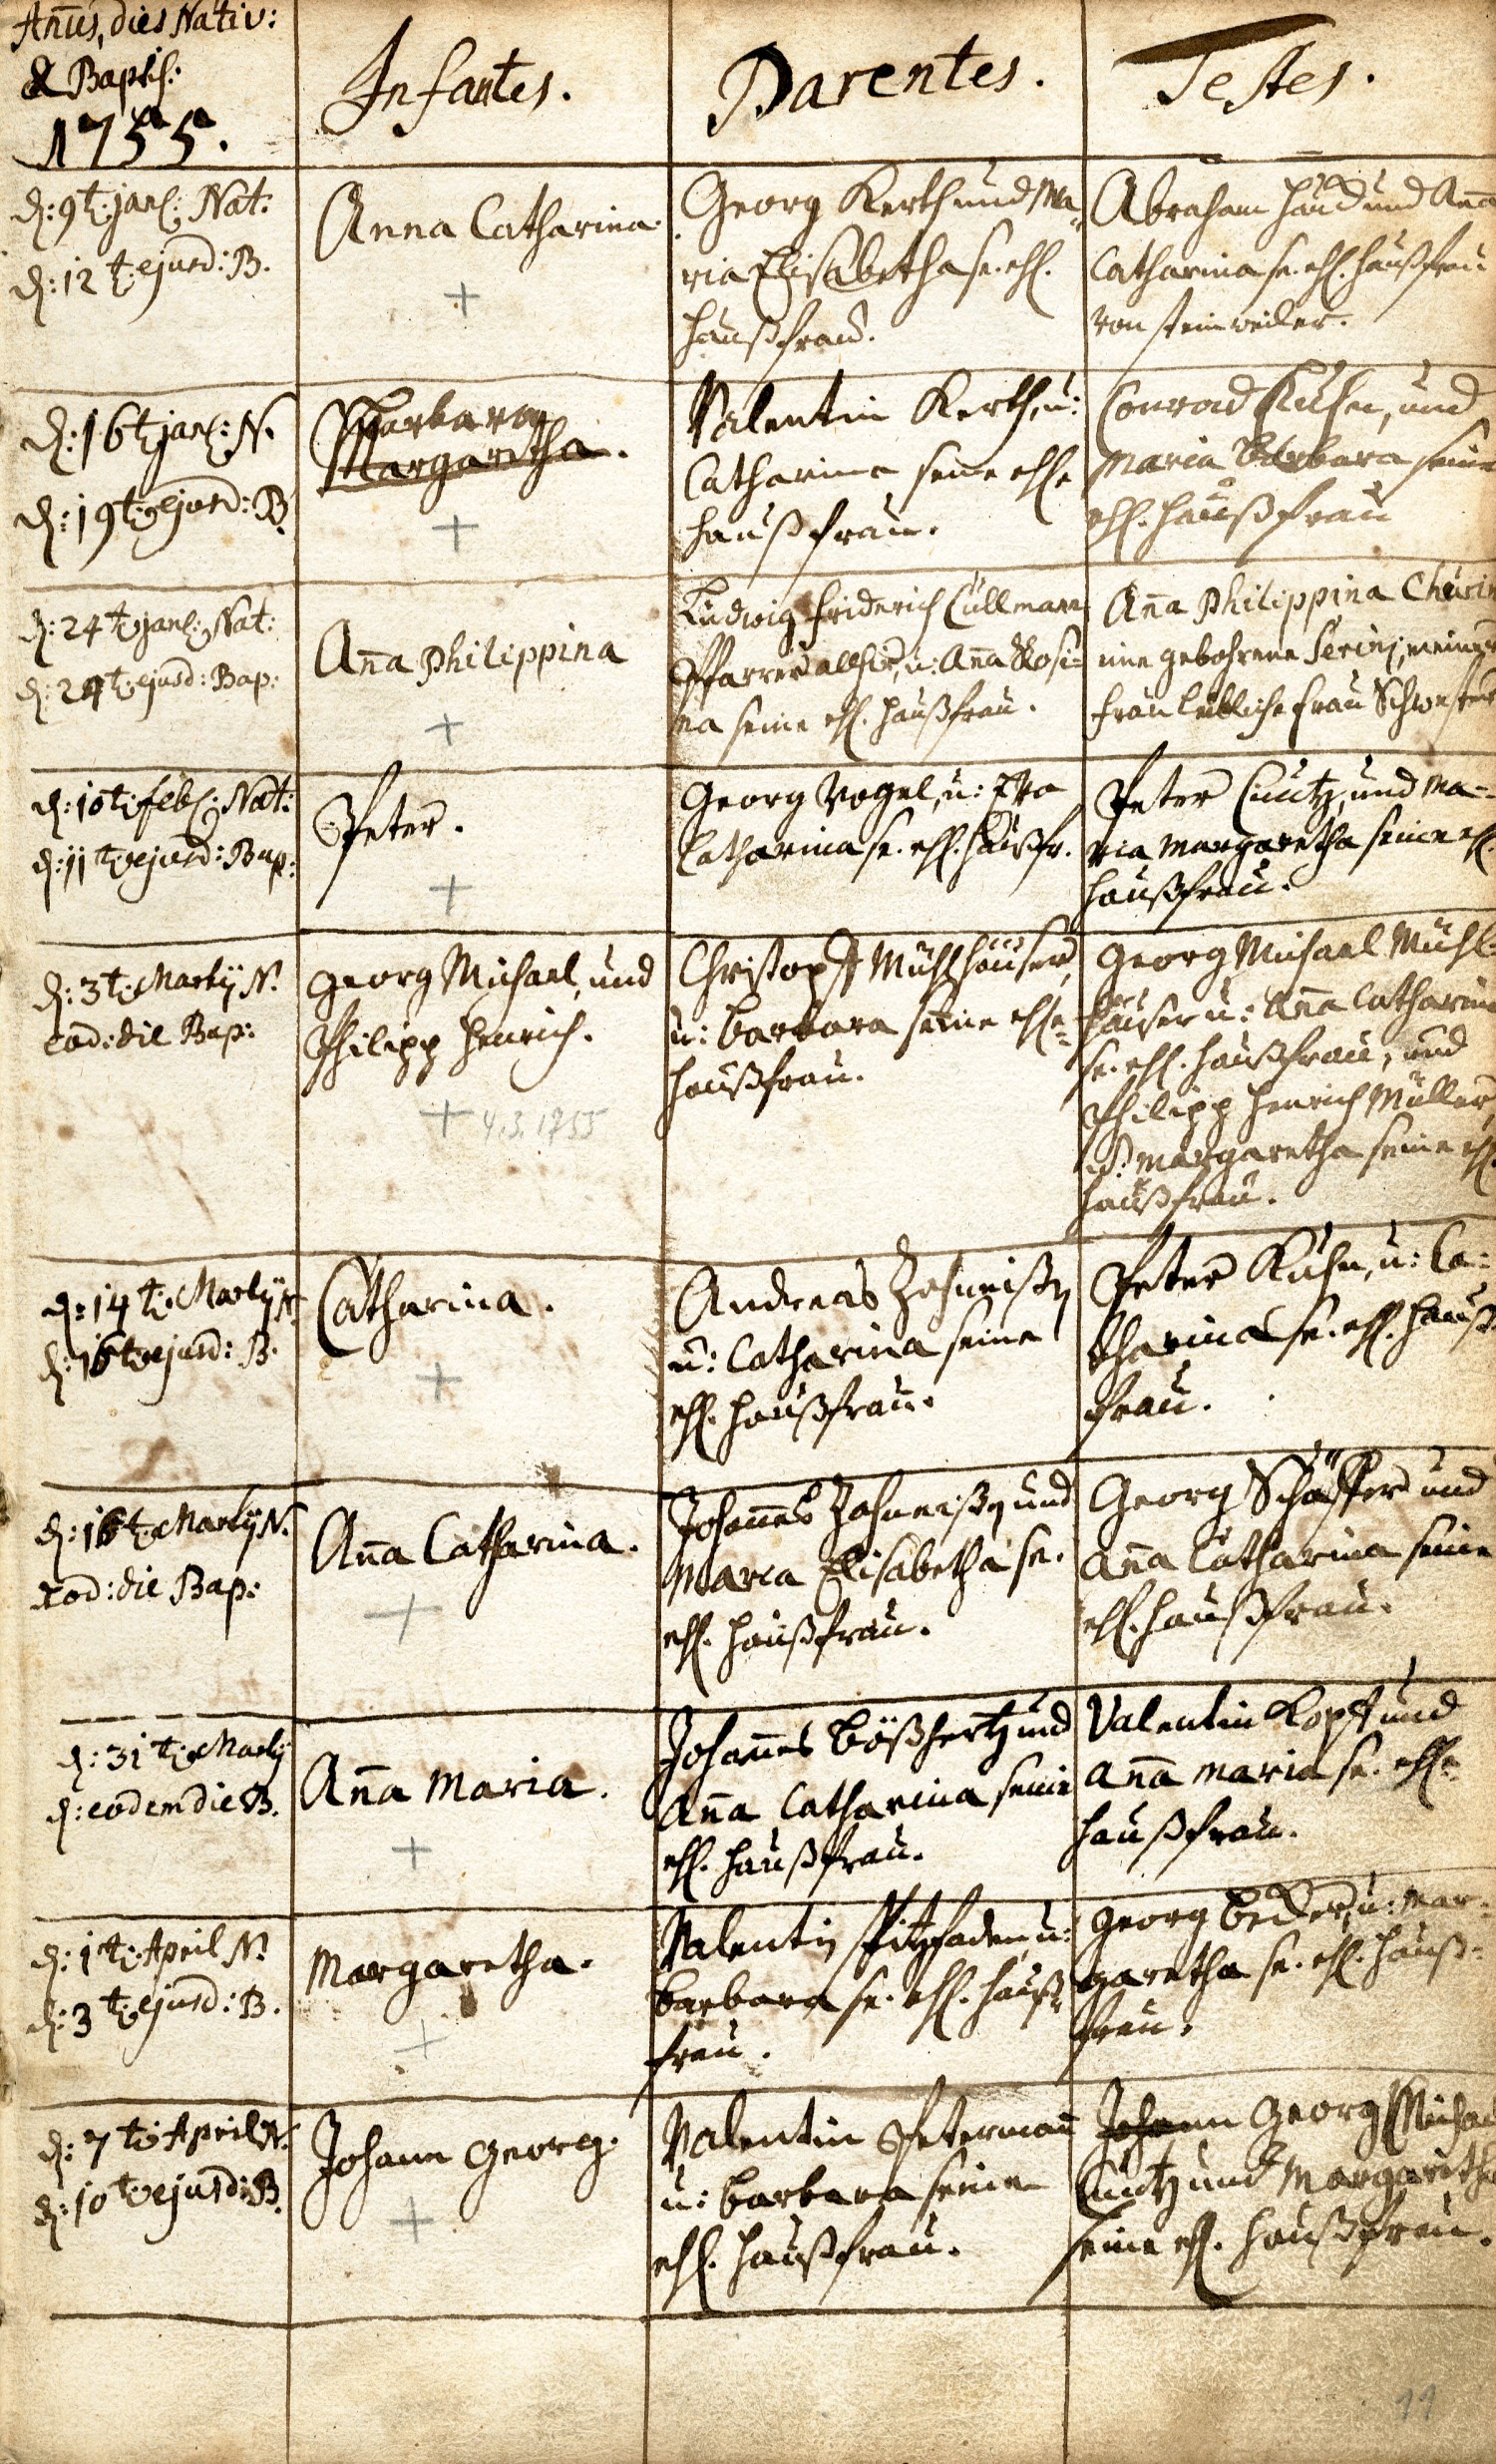 Anūs, dies Nativ:
& Baptis:
1755.
Infantes.
Parentes.
Testes.
d: 9t: jan: Nat:
d: 12t: ejusd: B.
Anna Catharina.
+
Georg Kerth und Ma=
ria Elisabetha se. ehl.
haußfrau.
Abraham und Aña
Catharina se. ehl. haußfrau
von steinweiler.
d: 16t jan: N.
d: 19t: ejusd: B.
Barbara
Margaretha.
+
Valentin Kerth, u:
Catharina seine ehle
haußfrau.
Conrad Kuhn, und
Maria Barbara seine
ehl. haußfrau
d: 24t: jan: Nat:
d: 29t: ejusd: Bap:
Aña Philippina
+
Ludwig Friderich Cullmann
Pfarrer allhier, u: Aña Rosi=
na seine ehl. haußfrau.
Aña Philippina
eine gebohrene meiner
frau leibliche frau Schwester
d: 10t: feb: Nat:
d: 11t: ejusd: Bap:
Peter.
+
Georg Vogel, u: Eva
Catharina se. ehl. haußfr.
Peter Cuntz, und Ma=
ria Margaretha seine ehl.
haußfrau.
d: 3t: Martij N.
eod: die Bap:
Georg Michael, und
Philipp Henrich.
+ 4.3.1755
Christoph Mühlhäuser,
u: Barbara seine ehle
haußfrau.
Georg Michael Mühl=
häuser u: Aña Catharina
se. ehl. haußfrau, und
Philipp Henrich Müller,
u: Margaretha seine ehl.
haußfrau.
d: 14t: Martij N.
d: 16t: ejusd: B.
Catharina.
+
Andreas Zahneißen
u: Catharina seine
ehl. haußfrau.
Peter Kuhn, u: Ca=
tharina se. ehl. hauß
frau.
d: 16t: Martij N.
eod: die Bap:
Aña Catharina.
+
Johañes Zahneißen und
Maria Elisabetha se.
ehl. haußfrau.
Georg Schäffer und
Aña Catharina seine
ehl. haußfrau.
d: 31t: Martij
d: eodem die B.
Aña Maria.
+
Johañes Bößhertz und
Aña Catharina seine
ehl. haußfrau.
Valentin Kopf und
Aña Maria se. ehle
haußfrau.
d: 1t: April N.
d: 3t: ejusd: B.
Margaretha.
+
Valentin Spitzfaden, u:
Barbara se. ehl. hauß=
frau.
Georg Becker, u: Mar=
garetha se. ehl. hauß=
frau.
d: 7t: April N.
d: 10t: ejusd: B.
Johann Georg.
+
Valentin Petermañ
u: Barbara seine
ehl. haußfrau.
Johann Georg Michael
Cuntz und Margaretha
seine ehl. haußfrau.
11